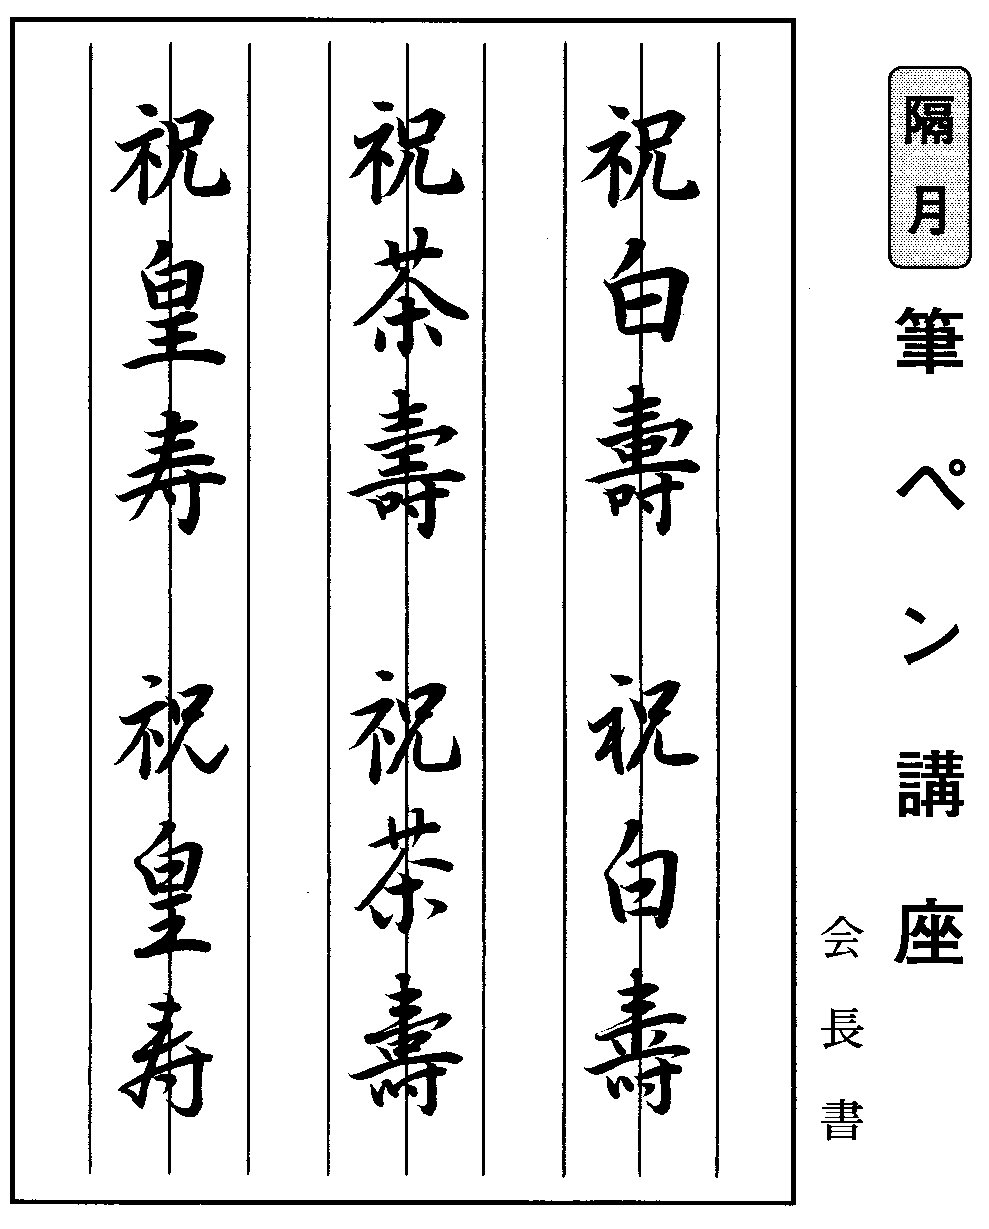 隔月
筆ペン講座
会長書
祝白壽 祝白壽
祝茶壽 祝茶壽
祝皇寿 祝皇寿